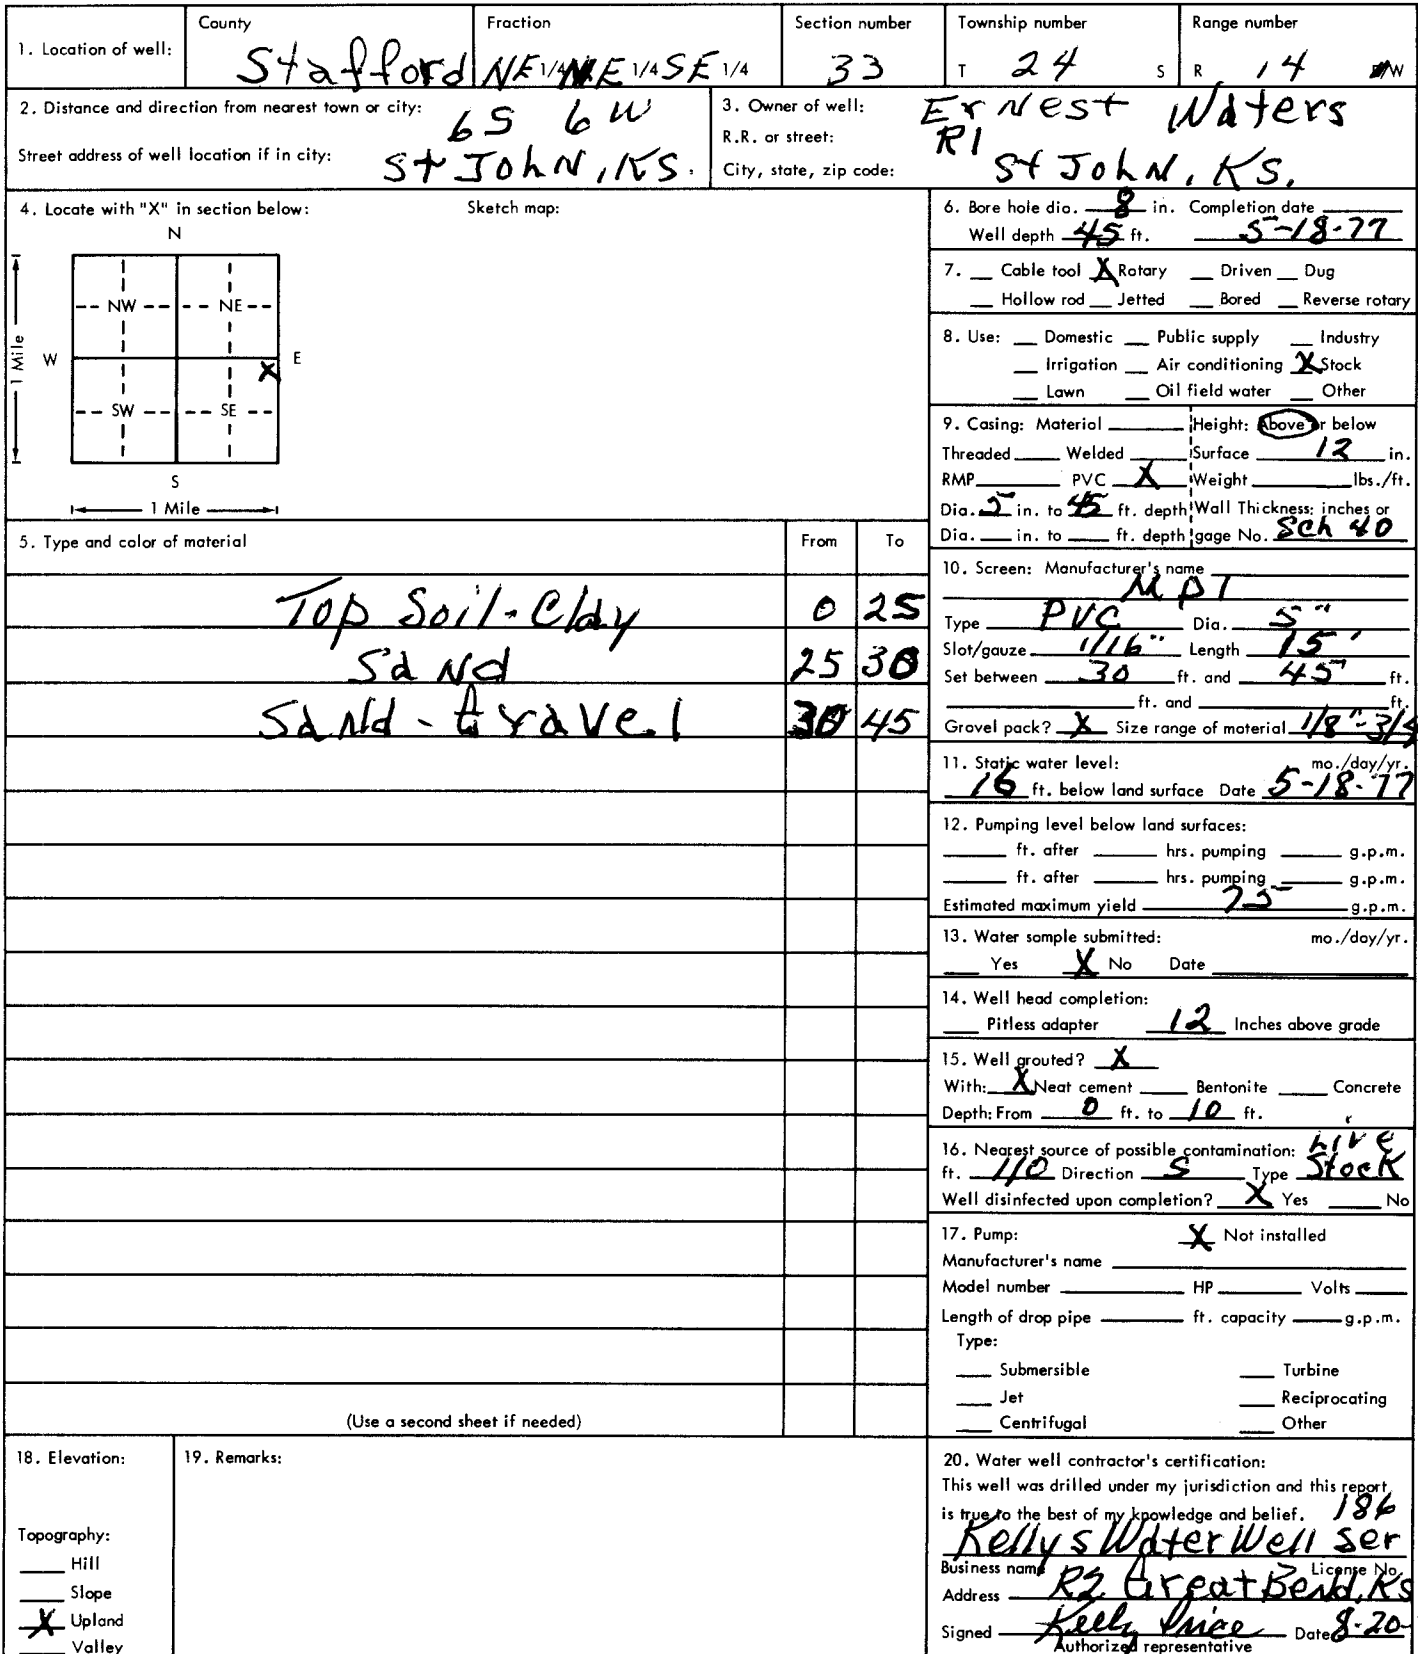 1. Location of well: County Stafford Fraction NE 1/4 NE 1/4 SE 1/4 Section number 33 Township number T 24 S Range number R 14 W
2. Distance and direction from nearest town or city: 6S 6W
Street address of well location if in city: St John, KS.
3. Owner of well: Ernest Waters
R.R. or street: R1
City, state, zip code: St John, KS.
4. Locate with "X" in section below: Sketch map:
N
NW NE
W E
X
SW SE
S
1 Mile
1 Mile
5. Type and color of material From To
Top Soil - Clay 0 25
Sand 25 30
Sand - Gravel 30 45
(Use a second sheet if needed)
6. Bore hole dia. 8 in. Completion date
Well depth 45 ft. 5-18-77
7. __ Cable tool X Rotary __ Driven __ Dug
__ Hollow rod __ Jetted __ Bored __ Reverse rotary
8. Use: __ Domestic __ Public supply __ Industry
__ Irrigation __ Air conditioning X Stock
__ Lawn __ Oil field water __ Other
9. Casing: Material ____ Height: Above or below
Threaded ____ Welded ____ Surface 12 in.
RMP ____ PVC X Weight ____ lbs./ft.
Dia. 5 in. to 45 ft. depth Wall Thickness: inches or
Dia. __ in. to __ ft. depth gage No. Sch 40
10. Screen: Manufacturer's name
MPI
Type PVC Dia. 5"
Slot/gauze 1/16" Length 15'
Set between 30 ft. and 45 ft.
____ ft. and ____ ft.
Gravel pack? X Size range of material 1/8"-3/4
11. Static water level: mo./day/yr.
16 ft. below land surface Date 5-18-77
12. Pumping level below land surfaces:
____ ft. after ____ hrs. pumping ____ g.p.m.
____ ft. after ____ hrs. pumping ____ g.p.m.
Estimated maximum yield 75 g.p.m.
13. Water sample submitted: mo./day/yr.
__ Yes X No Date ____
14. Well head completion:
__ Pitless adapter 12 Inches above grade
15. Well grouted? X
With: X Neat cement __ Bentonite __ Concrete
Depth: From 0 ft. to 10 ft.
16. Nearest source of possible contamination: Live
ft. 110 Direction S Type Stock
Well disinfected upon completion? X Yes __ No
17. Pump: X Not installed
Manufacturer's name ____
Model number ____ HP ____ Volts ____
Length of drop pipe ____ ft. capacity ____ g.p.m.
Type:
__ Submersible __ Turbine
__ Jet __ Reciprocating
__ Centrifugal __ Other
18. Elevation:
Topography:
__ Hill
__ Slope
X Upland
__ Valley
19. Remarks:
20. Water well contractor's certification:
This well was drilled under my jurisdiction and this report
is true to the best of my knowledge and belief. 186
Kellys Water Well Ser
Business name License No.
Address R2 Great Bend, Ks
Signed Kelly Price Date 8-20-
Authorized representative